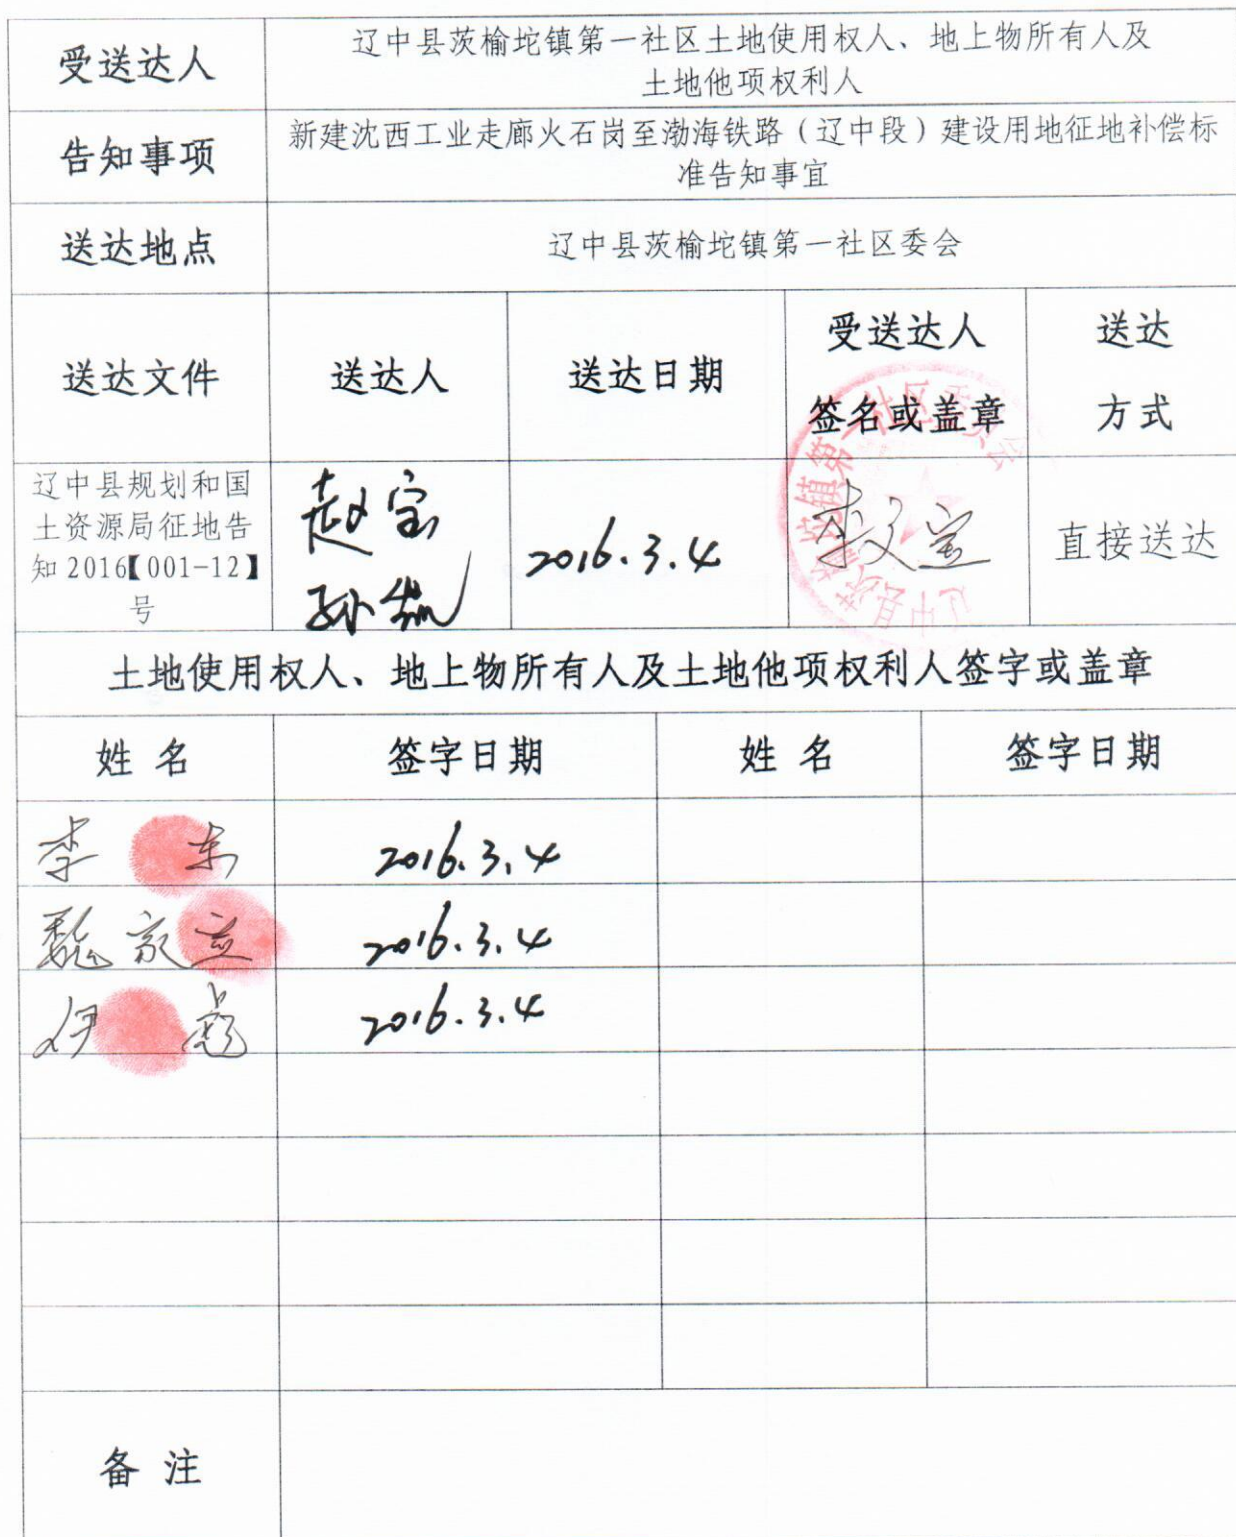 受送达人
辽中县茨榆坨镇第一社区土地使用权人、地上物所有人及
土地他项权利人
告知事项
新建沈西工业走廊火石岗至渤海铁路（辽中段）建设用地征地补偿标
准告知事宜
送达地点
辽中县茨榆坨镇第一社区委会
送达文件
送达人
送达日期
受送达人
签名或盖章
送达
方式
辽中县规划和国
土资源局征地告
知2016【001-12】
号
赵宝
孙
2016.3.4
宝
直接送达
辽中县茨榆坨镇第一社区委员会
土地使用权人、地上物所有人及土地他项权利人签字或盖章
姓 名
签字日期
姓 名
签字日期
李 东
2016.3.4
魏家
2016.3.4
伊 彪
2016.3.4
备 注